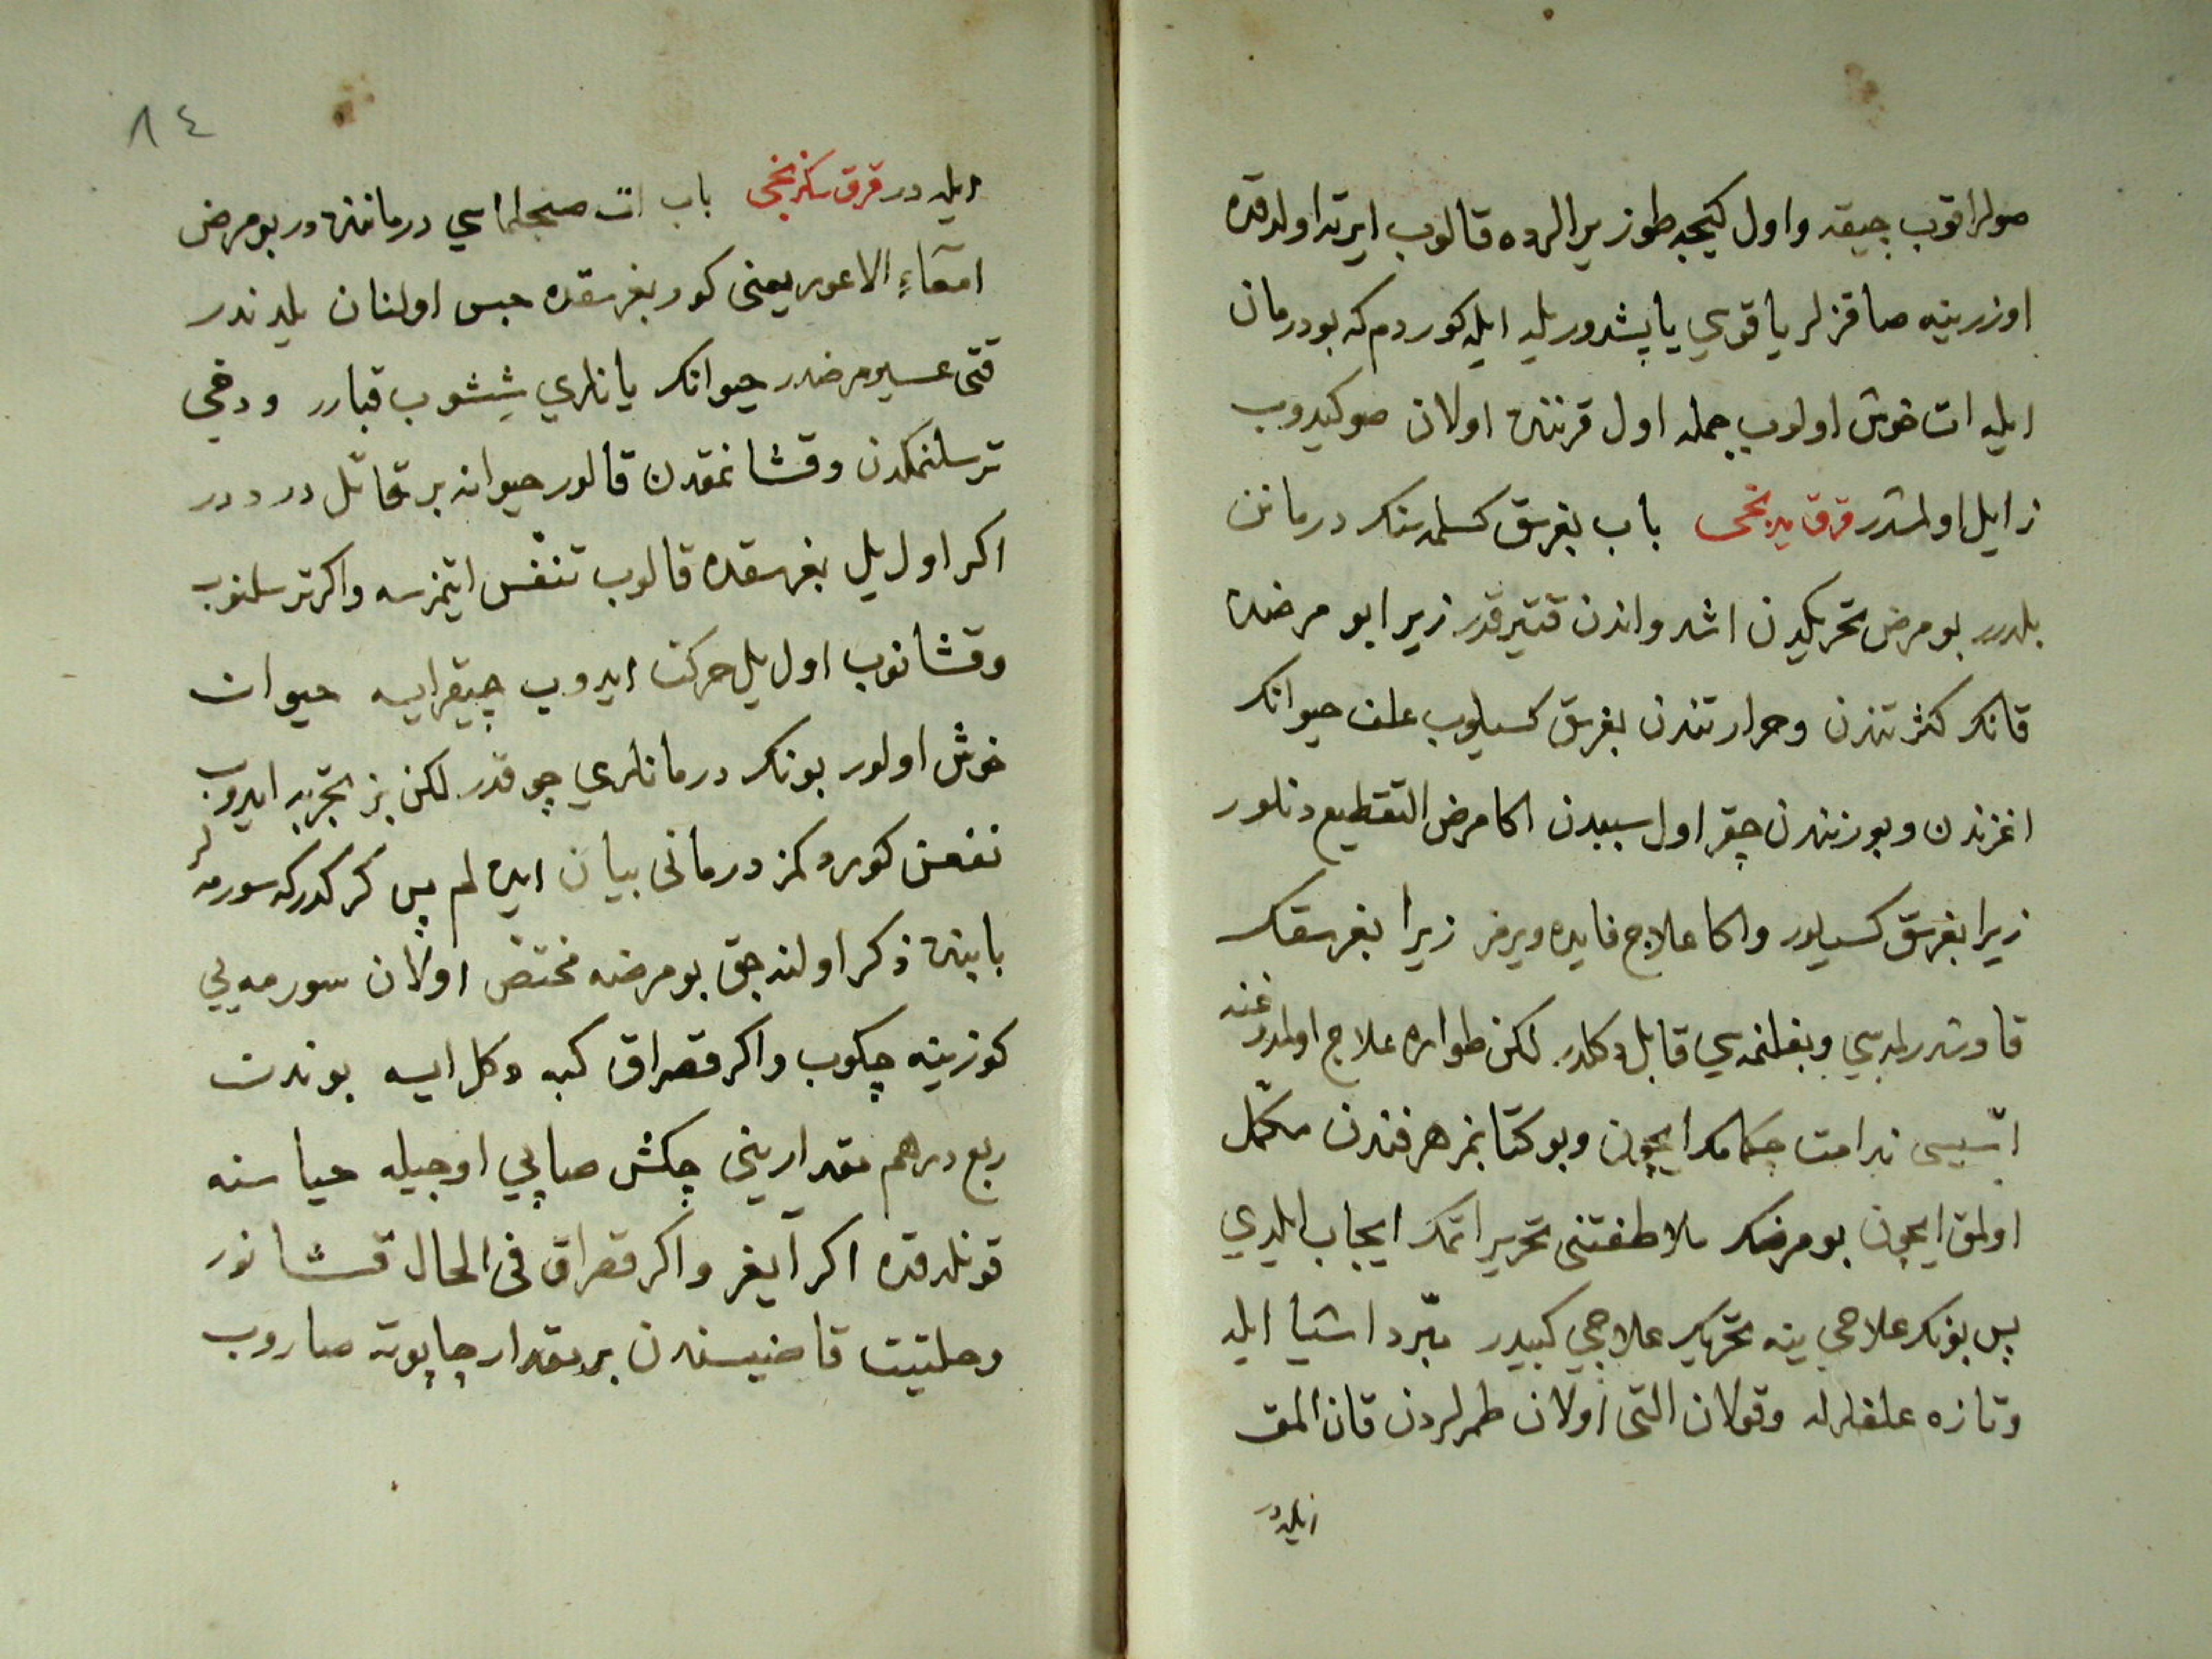 صولر اقوب چيقه واول كيجه طوز يرالرده قالوب ايرته اولدقده
اوزرينه صاقزلر ياقوي ياپشدوريله ايله كوردم كه بو درمان
ايله ات خوش اولوب جمله اول قرننده اولان صو كيدوب
زايل اولمشدر قرق يدنجى باب بغرسق كسلمه سنك درمانن
بلدرر بو مرض تحريكدن اشد واندن قتيرقدر زيرا بو مرضده
قانك كثرتندن وحرارتندن بغرسق كسيلوب علف حيوانك
اغزندن وبورنندن چقر اول سببدن اكا مرض التقطيع دنلور
زيرا بغرسق كسيلور واكا علاج فايده ويرمز زيرا بغرسقك
قاوشدرلمسي وبغلنمسي قابل دكلدر لكن طواره علاج اولمدوغنه
اتسيسى ندامت چكمامك ايچون وبو كتابمز هر فندن مكمّل
اولمق ايچون بو مرضك ملاطفتنى تحرير اتمك ايجاب ايلدي
پس بونك علاجي ينه تحريك علاجي كبيدر مبّرد اشيا ايله
وتازه علفلرله وقولان التى اولان طمرلردن قان المق
ايله در
٨٤
ايله در قرق سكزنجى باب ات صنجلماسي درماننده در بو مرض
امعآءِ الاعور يعنى كور بغرسقده حبس اولنان يلدندر
قتى عسير مرضدر حيوانك يانلري شيشوب قبارر ودخي
ترسلنمكدن وقشانمقدن قالور حيوانه بر قاتل درددر
اكر اول يل بغرسقده قالوب تنفّس ايتمزسه واكر ترسلنوب
وقشانوب اول يل حركت ايدوب چيقرايسه حيوان
خوش اولور بونك درمانلري چوقدر لكن بز تجربه ايدوب
نفعن كوردكمز درمانى بيان ايده لم پس كركدر كه سورمه لر
بابنده ذكر اولنه جق بو مرضه مختص اولان سورمه يي
كوزينه چكوب واكر قصراق كبه دكل ايسه بوندن
ربع درهم مقدارينى چكش صاپي اوجيله حياسنه
قونلدقده اكر آيغر واكر قصراق فى الحال قشانور
وحلتيت قاضيسندن بر مقدار چاپوته صاروب